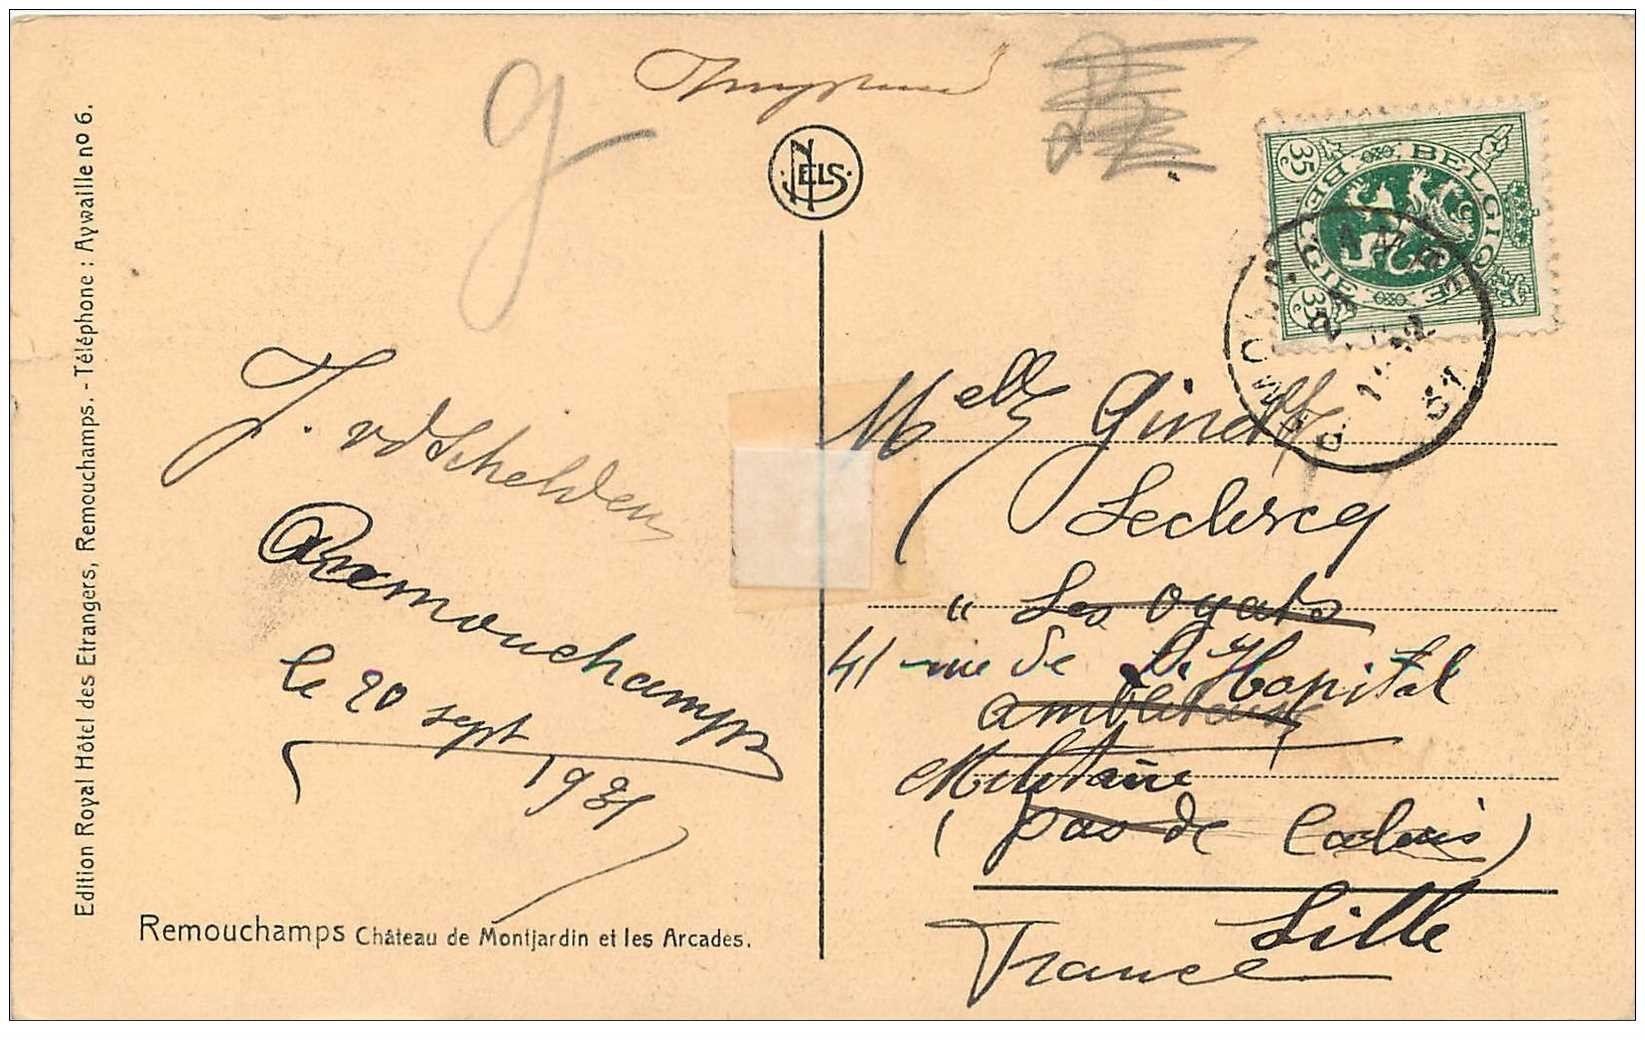 Edition Royal Hôtel des Etrangers, Remouchamps. - Téléphone : Aywaille nº 6.
g
NELS
BELGIQUE BELGIE
35c 35c
J. vd Schelden
Remouchamps
le 20 sept 1931
Remouchamps Château de Montjardin et les Arcades.
Melle Ginette
Leclercq
" Les oyats
41 rue de L'Hopital
Ambleteuse
Militaire
( Pas de Calais )
Lille
France